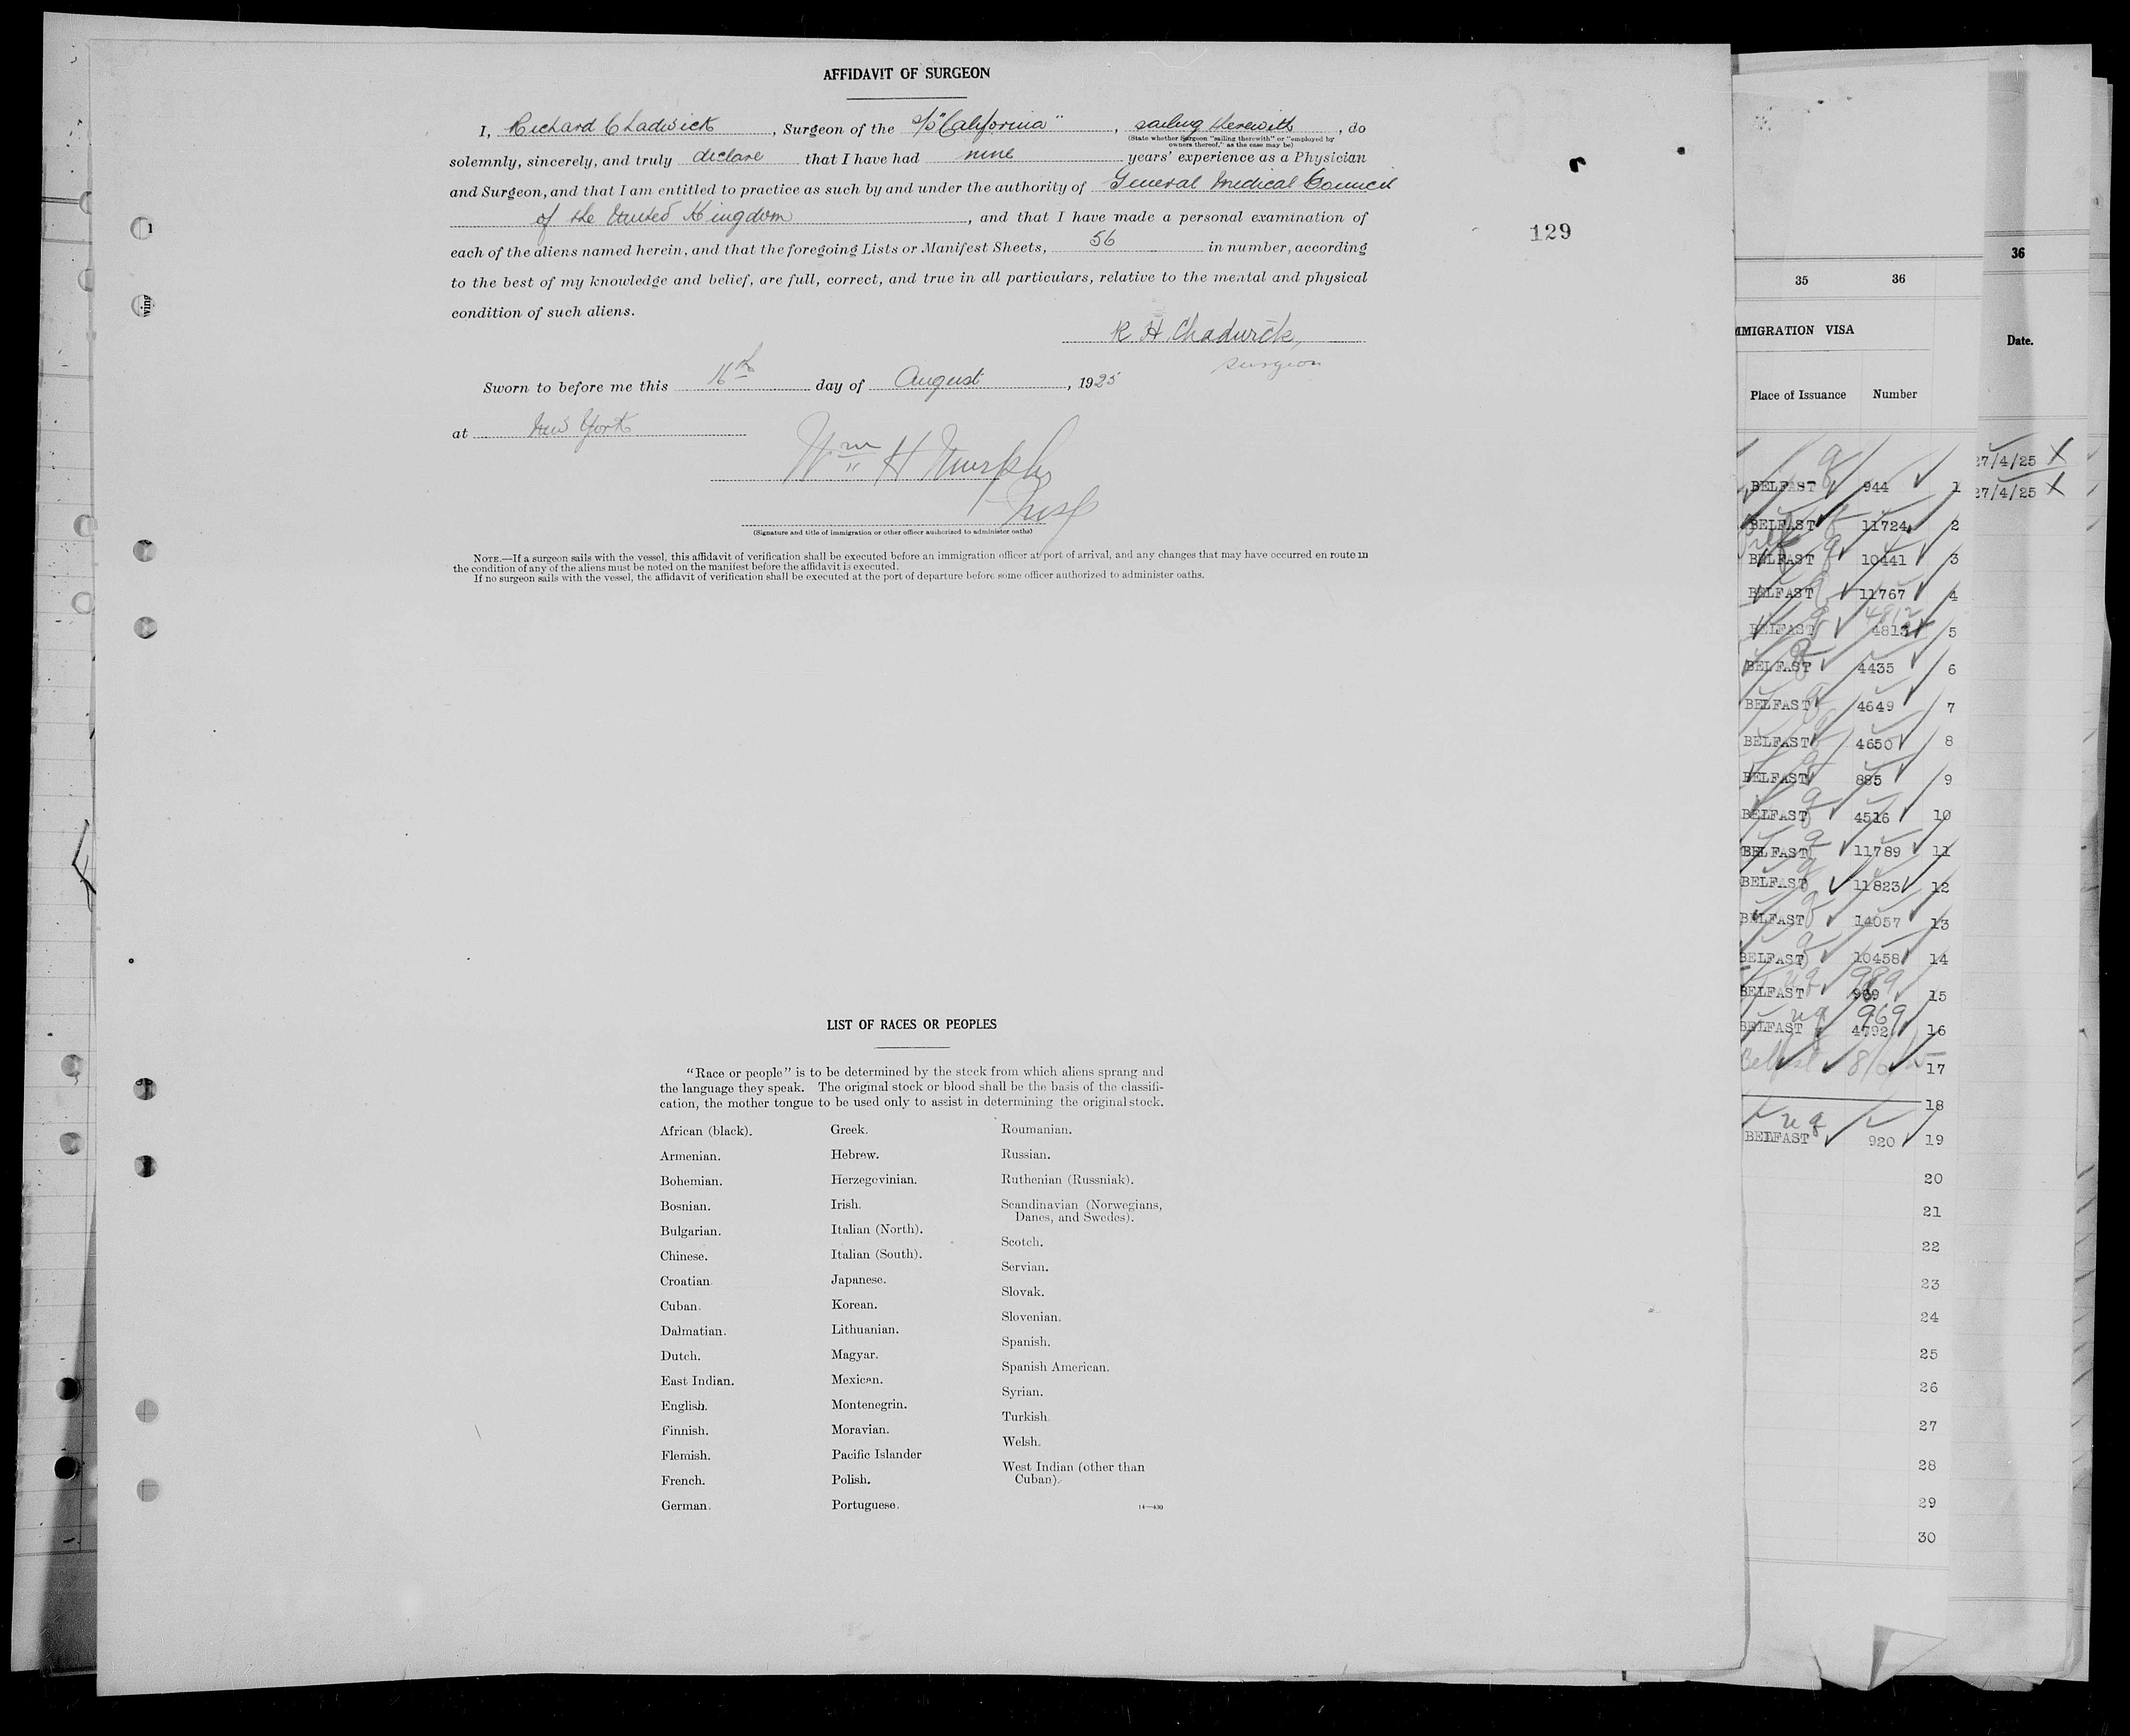 AFFIDAVIT OF SURGEON
I, Richard Chadwick, Surgeon of the S/S "California", sailing therewith, do
(State whether Surgeon "sailing therewith" or "employed by
owners thereof," as the case may be)
solemnly, sincerely, and truly declare that I have had nine years' experience as a Physician
and Surgeon, and that I am entitled to practice as such by and under the authority of General Medical Council
of the United Kingdom, and that I have made a personal examination of
each of the aliens named herein, and that the foregoing Lists or Manifest Sheets, 56 in number, according
to the best of my knowledge and belief, are full, correct, and true in all particulars, relative to the mental and physical
condition of such aliens.
R H Chadwick,
surgeon
Sworn to before me this 16th day of August, 1925
at New York
Wm H Murphy
Insp
(Signature and title of immigration or other officer authorized to administer oaths)
NOTE.—If a surgeon sails with the vessel, this affidavit of verification shall be executed before an immigration officer at port of arrival, and any changes that may have occurred en route in
the condition of any of the aliens must be noted on the manifest before the affidavit is executed.
If no surgeon sails with the vessel, the affidavit of verification shall be executed at the port of departure before some officer authorized to administer oaths.
129
LIST OF RACES OR PEOPLES
"Race or people" is to be determined by the stock from which aliens sprang and
the language they speak. The original stock or blood shall be the basis of the classifi-
cation, the mother tongue to be used only to assist in determining the original stock.
African (black).
Armenian.
Bohemian.
Bosnian.
Bulgarian.
Chinese.
Croatian
Cuban.
Dalmatian.
Dutch.
East Indian.
English.
Finnish.
Flemish.
French.
German.
Greek.
Hebrew.
Herzegovinian.
Irish.
Italian (North).
Italian (South).
Japanese.
Korean.
Lithuanian.
Magyar.
Mexican.
Montenegrin.
Moravian.
Pacific Islander
Polish.
Portuguese.
Roumanian.
Russian.
Ruthenian (Russniak).
Scandinavian (Norwegians,
Danes, and Swedes).
Scotch.
Servian.
Slovak.
Slovenian.
Spanish.
Spanish American.
Syrian.
Turkish.
Welsh.
West Indian (other than
Cuban).
14—430
35 36
IMMIGRATION VISA
Place of Issuance Number
BELFAST 944 1
BELFAST 11724 2
BELFAST 10441 3
BELFAST 11767 4
BELFAST 4812 5
BELFAST 4435 6
BELFAST 4649 7
BELFAST 4650 8
BELFAST 885 9
BELFAST 4516 10
BELFAST 11789 11
BELFAST 11823 12
BELFAST 14057 13
BELFAST 10458 14
BELFAST 989 15
BELFAST 4792 969 16
Belfast 17
18
BELFAST 920 19
20
21
22
23
24
25
26
27
28
29
30
36
Date.
27/4/25 X
27/4/25 X